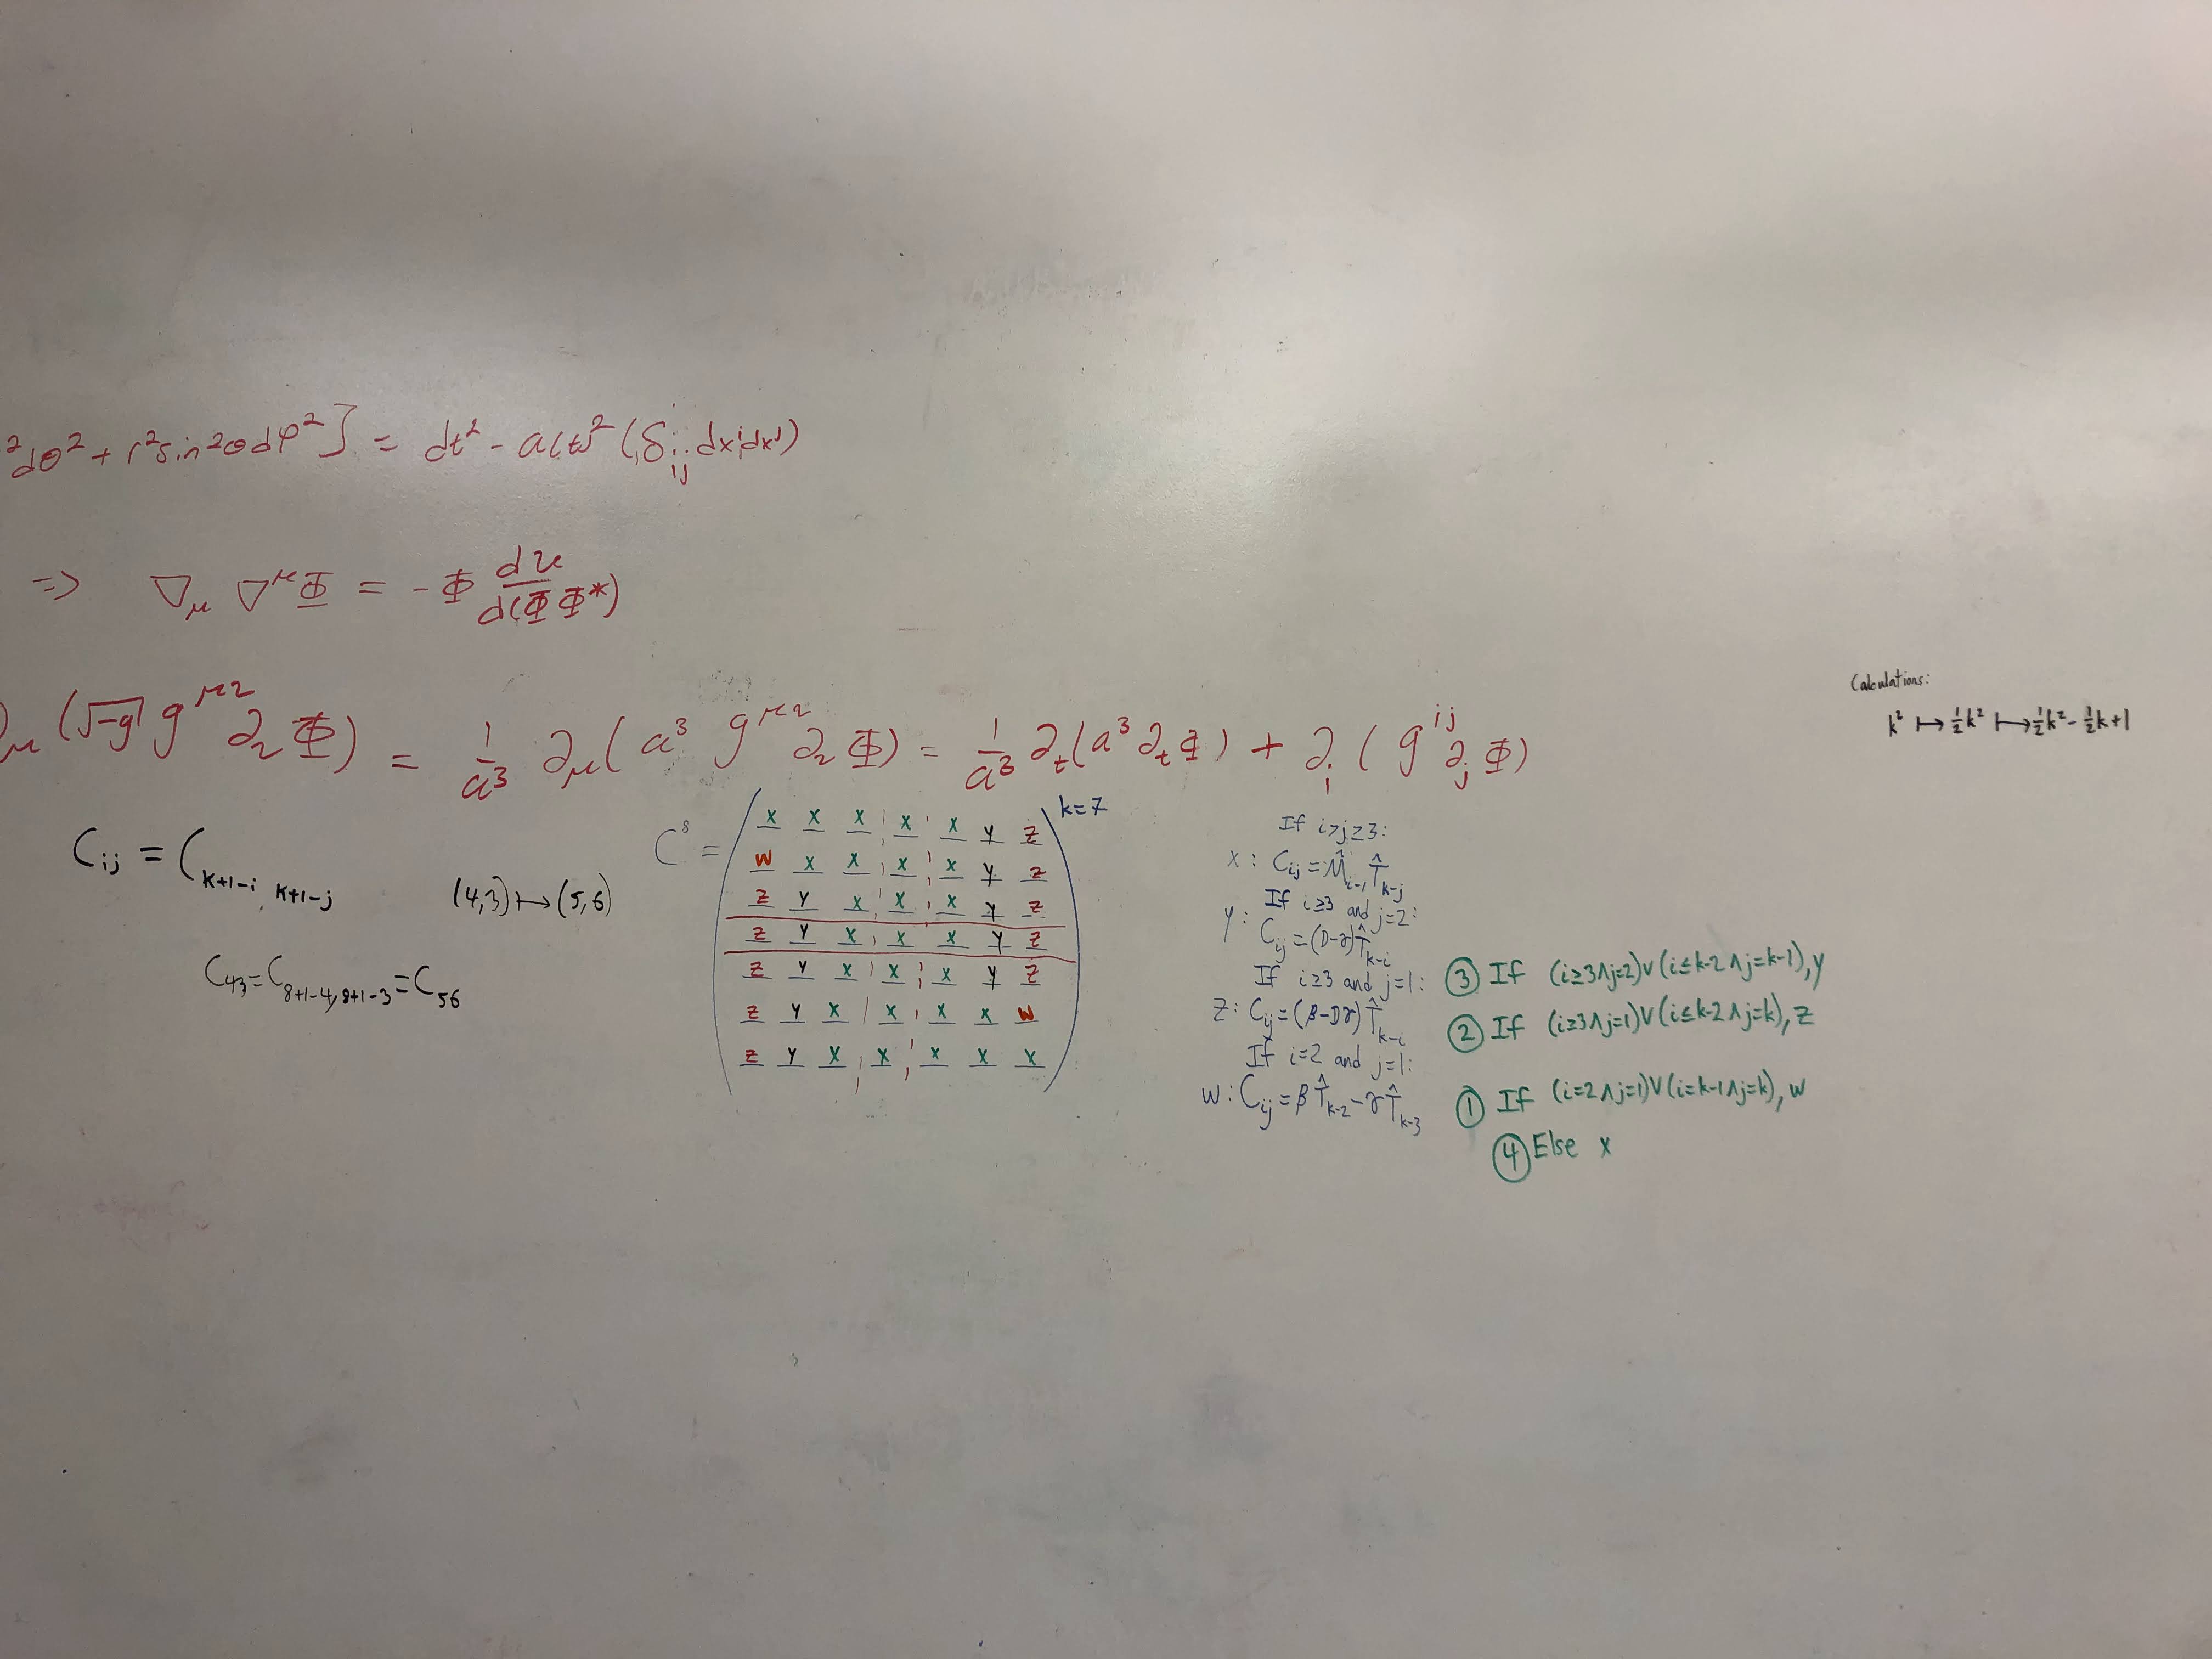 ²dθ² + r²sin²θdφ²] = dt² - a(t)²(δ_ij dxⁱdxʲ)
⇒ ∇_μ ∇^μ Φ = -Φ du/d(ΦΦ*)
∂_μ(√-g g^μν ∂_ν Φ) = 1/a³ ∂_μ(a³ g^μν ∂_ν Φ) = 1/a³ ∂_t(a³∂_tΦ) + ∂_i(g^ij ∂_j Φ)
Calculations:
k² ↦ ½k² ↦ ½k² - ½k+1
C_ij = C_k+1-i, k+1-j
(4,3) ↦ (5,6)
C_43 = C_8+1-4,8+1-3 = C_56
C⁸ =
k=7
x x x x x y z
w x x x x y z
z y x x x y z
z y x x x y z
z y x x x y z
z y x x x x w
z y x x x x x
If i>j≥3:
x: C_ij = M̂_i-1 T̂_k-j
If i≥3 and j=2:
y: C_ij = (D-γ)T̂_k-i
If i≥3 and j=1:
z: C_ij = (β-Dγ)T̂_k-i
If i=2 and j=1:
w: C_ij = βT̂_k-2 - γT̂_k-3
③ If (i≥3∧j=2)∨(i≤k-2∧j=k-1), y
② If (i≥3∧j=1)∨(i≤k-2∧j=k), z
① If (i=2∧j=1)∨(i=k-1∧j=k), w
④ Else x